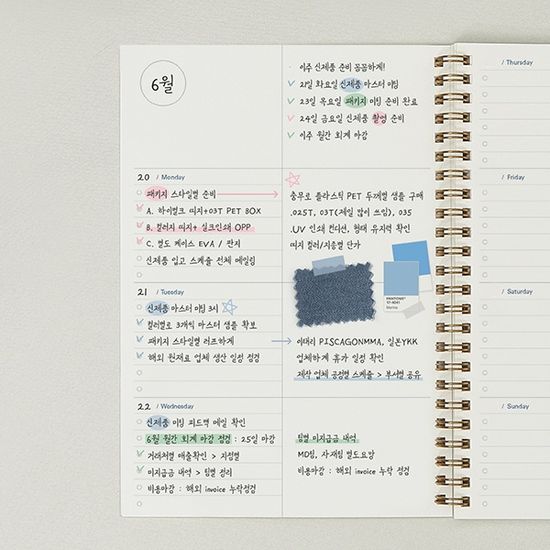 6월
· 이주 신제품 준비 꼼꼼하게!
21일 화요일 신제품 마스터 미팅
23일 목요일 패키지 미팅 준비 완료
24일 금요일 신제품 촬영 준비
이주 월간 회계 마감
20 / Monday
패키지 스타일별 준비
A. 하이퀄크 띠지+03T PET BOX
B. 컬러지 띠지+ 실크인쇄 OPP
C. 별도 케이스 EVA / 판지
신제품 입고 스케줄 전체 메일링
충무로 플라스틱 PET 두께별 샘플 구매
.025T, 03T(제일 많이 쓰임), 035
.UV 인쇄 컨디션, 형태 유지력 확인
띠지 컬러/지종별 단가
PANTONE®
21 / Tuesday
신제품 마스터 미팅 3시
컬러별로 3개씩 마스터 샘플 확보
패키지 스타일별 러프하게
해외 원재료 업체 생산 일정 점검
이태리 PISCAGONMMA, 일본YKK
업체하계 휴가 일정 확인
제작 업체 공정별 스케줄 > 부서별 공유
22 / Wednesday
신제품 미팅 피드백 메일 확인
6월 월간 회계 마감 점검 : 25일 마감
거래처별 매출확인 > 지정별
미지급금 내역 > 팀별 정리
비용마감 : 해외 invoice 누락점검
팀별 미지급금 내역
MD팀, 자재팀 별도요망
비용마감 : 해외 invoice 누락 점검
/ Thursday
/ Friday
/ Saturday
/ Sunday